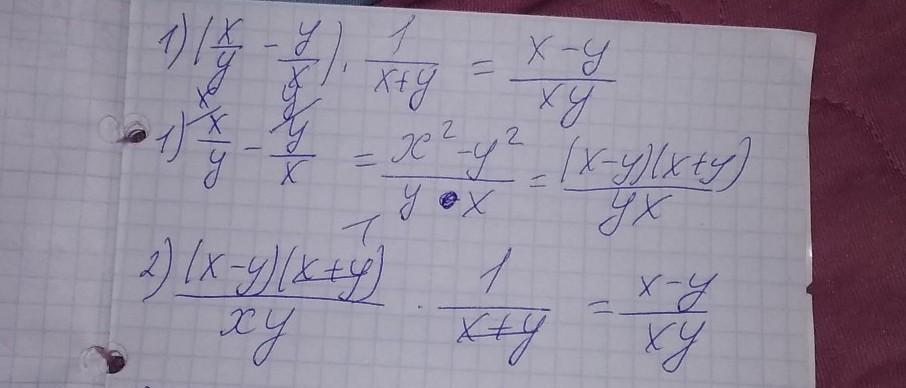 1) (x/y - y/x) · 1/(x+y) = (x-y)/(xy)
1) x/y - y/x = (x² - y²)/(y · x) = ((x-y)(x+y))/(yx)
2) ((x-y)(x+y))/(xy) · 1/(x+y) = (x-y)/(xy)